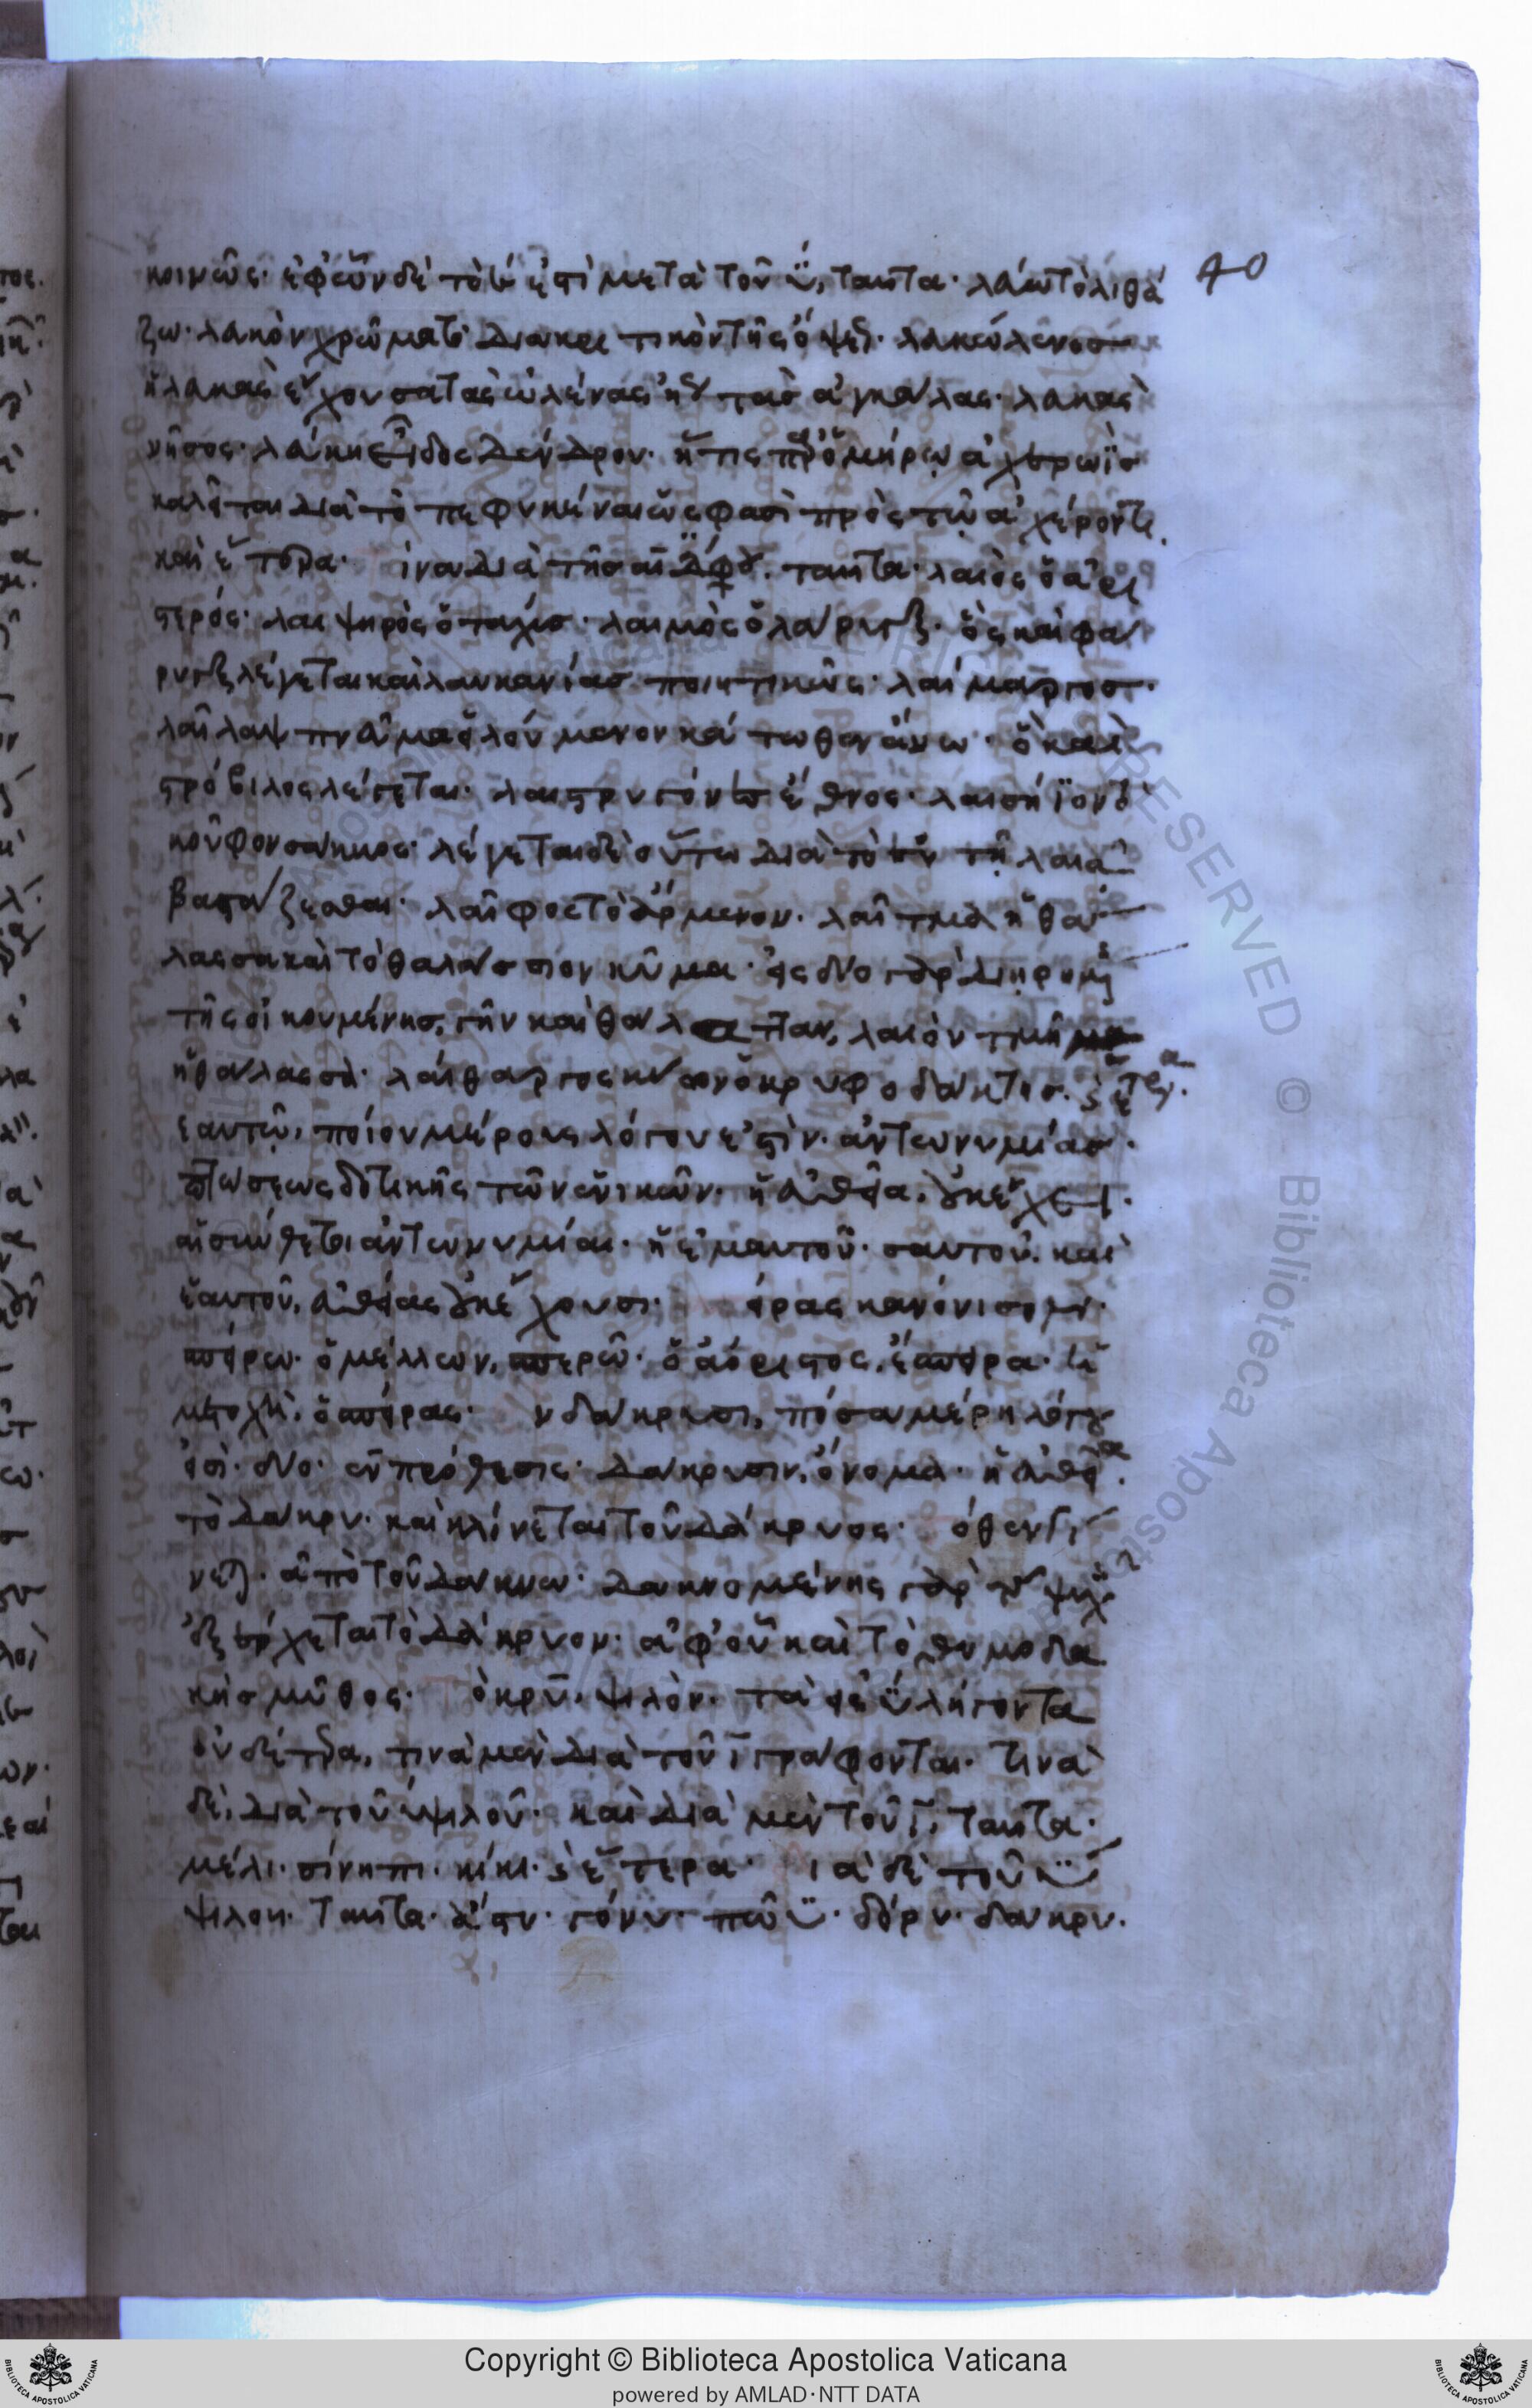 κοινῶς· ἐφ' ὧν δὲ τὸ ἐστὶ μετὰ τοῦ ϋ, ταῦτα· λάω τὸ λιθά
ζω· λακὸν χρώματος διακριτικὸν τῆς ὄψεως·
ἔχουσα τὰς ὠλένας ἤγουν τὰς ἀγκάλας·
νῆσος· λάκη εἶδος δένδρον· ἥτις παρ' ὁμήρω ἀχερωῒς
καλεῖται διὰ τὸ πεφυκέναι ὥς φασι πρὸς τῶ ἀχέροντι
καὶ ἕτερα· ταῦτα· λαιὸς ὁ ἀρι
στερός· λαιψηρὸς ὁ ταχύς· λαιμὸς ὁ λάρυγξ· ὃς καὶ φά
ρυγξ λέγεται καὶ λαυκανίας ποιητικῶς· λαίμαργος·
λαῖλαψ πνεῦμα εἱλούμενον κάτωθεν ἄνω· ὃ καὶ
στρόβιλος λέγεται· λαιστρυγόνες ἔθνος· λαισήϊον τὸ
κοῦφον σάκκος· λέγεται δὲ οὕτω διὰ τὸ ἐν τῆ λαιᾶ
βαστάζεσθαι· λαῖφος τὸ ἄρμενον· λαῖτμα ἡ θά
λασσα καὶ τὸ θαλάσσιον κῦμα· εἰς δύο γὰρ διηρημένης
τῆς οἰκουμένης, γῆν καὶ θάλατταν, λαιὸν τμῆμα
ἡ θάλασσα· λαίθαργος κύων ὁ κρυφοδάκτης· καὶ ἕτερα·
ἑαυτῶ, ποίου μέρους λόγου ἐστίν· ἀντωνυμίας·
πτώσεως δοτικῆς τῶν ἑνικῶν· ἡ εὐθεῖα, οὐκ ἔχει·
αἱ σύνθετοι ἀντωνυμίαι· ἡ ἐμαυτοῦ· σαυτοῦ· καὶ
ἑαυτοῦ, εὐθείας οὐκ ἔχουσι· είρας κανόνισον·
σπείρω· ὁ μέλλων, σπερῶ· ὁ ἀόριστος, ἔσπειρα· ἡ
μετοχὴ, ὁ σπείρας· ν δάκρυσι, πόσα μέρη λόγου
εἰσὶ· δύο· ἐν πρόθεσις· δάκρυσιν, ὄνομα· ἡ εὐθεῖα
τὸ δάκρυ· καὶ κλίνεται τοῦ δάκρυος· όθεν γί
νεται· ἀπὸ τοῦ δάκνω· δακνομένης γὰρ τῆς ψυχῆς
ἐξέρχεται τὸ δάκρυον· ἀφ' οὗ καὶ τὸ θυμοδα
κὴς μῦθος· ὸ κρῦ, ψιλόν· τὰ εἰς ϋ λήγοντα
οὐδέτερα, τινὰ μὲν διὰ τοῦ ϊ γράφονται· τινὰ
δὲ, διὰ τοῦ ὑψιλοῦ· καὶ διὰ μὲν τοῦ ϊ, ταῦτα·
μέλι· σίνηπι· κίκι· καὶ ἕτερα· ιὰ δὲ τοῦ ϋ
ψιλοῦ· ταῦτα· ἄστυ· γόνυ· πῶϋ· δόρυ· δάκρυ·
40
Copyright © Biblioteca Apostolica Vaticana
powered by AMLAD·NTT DATA